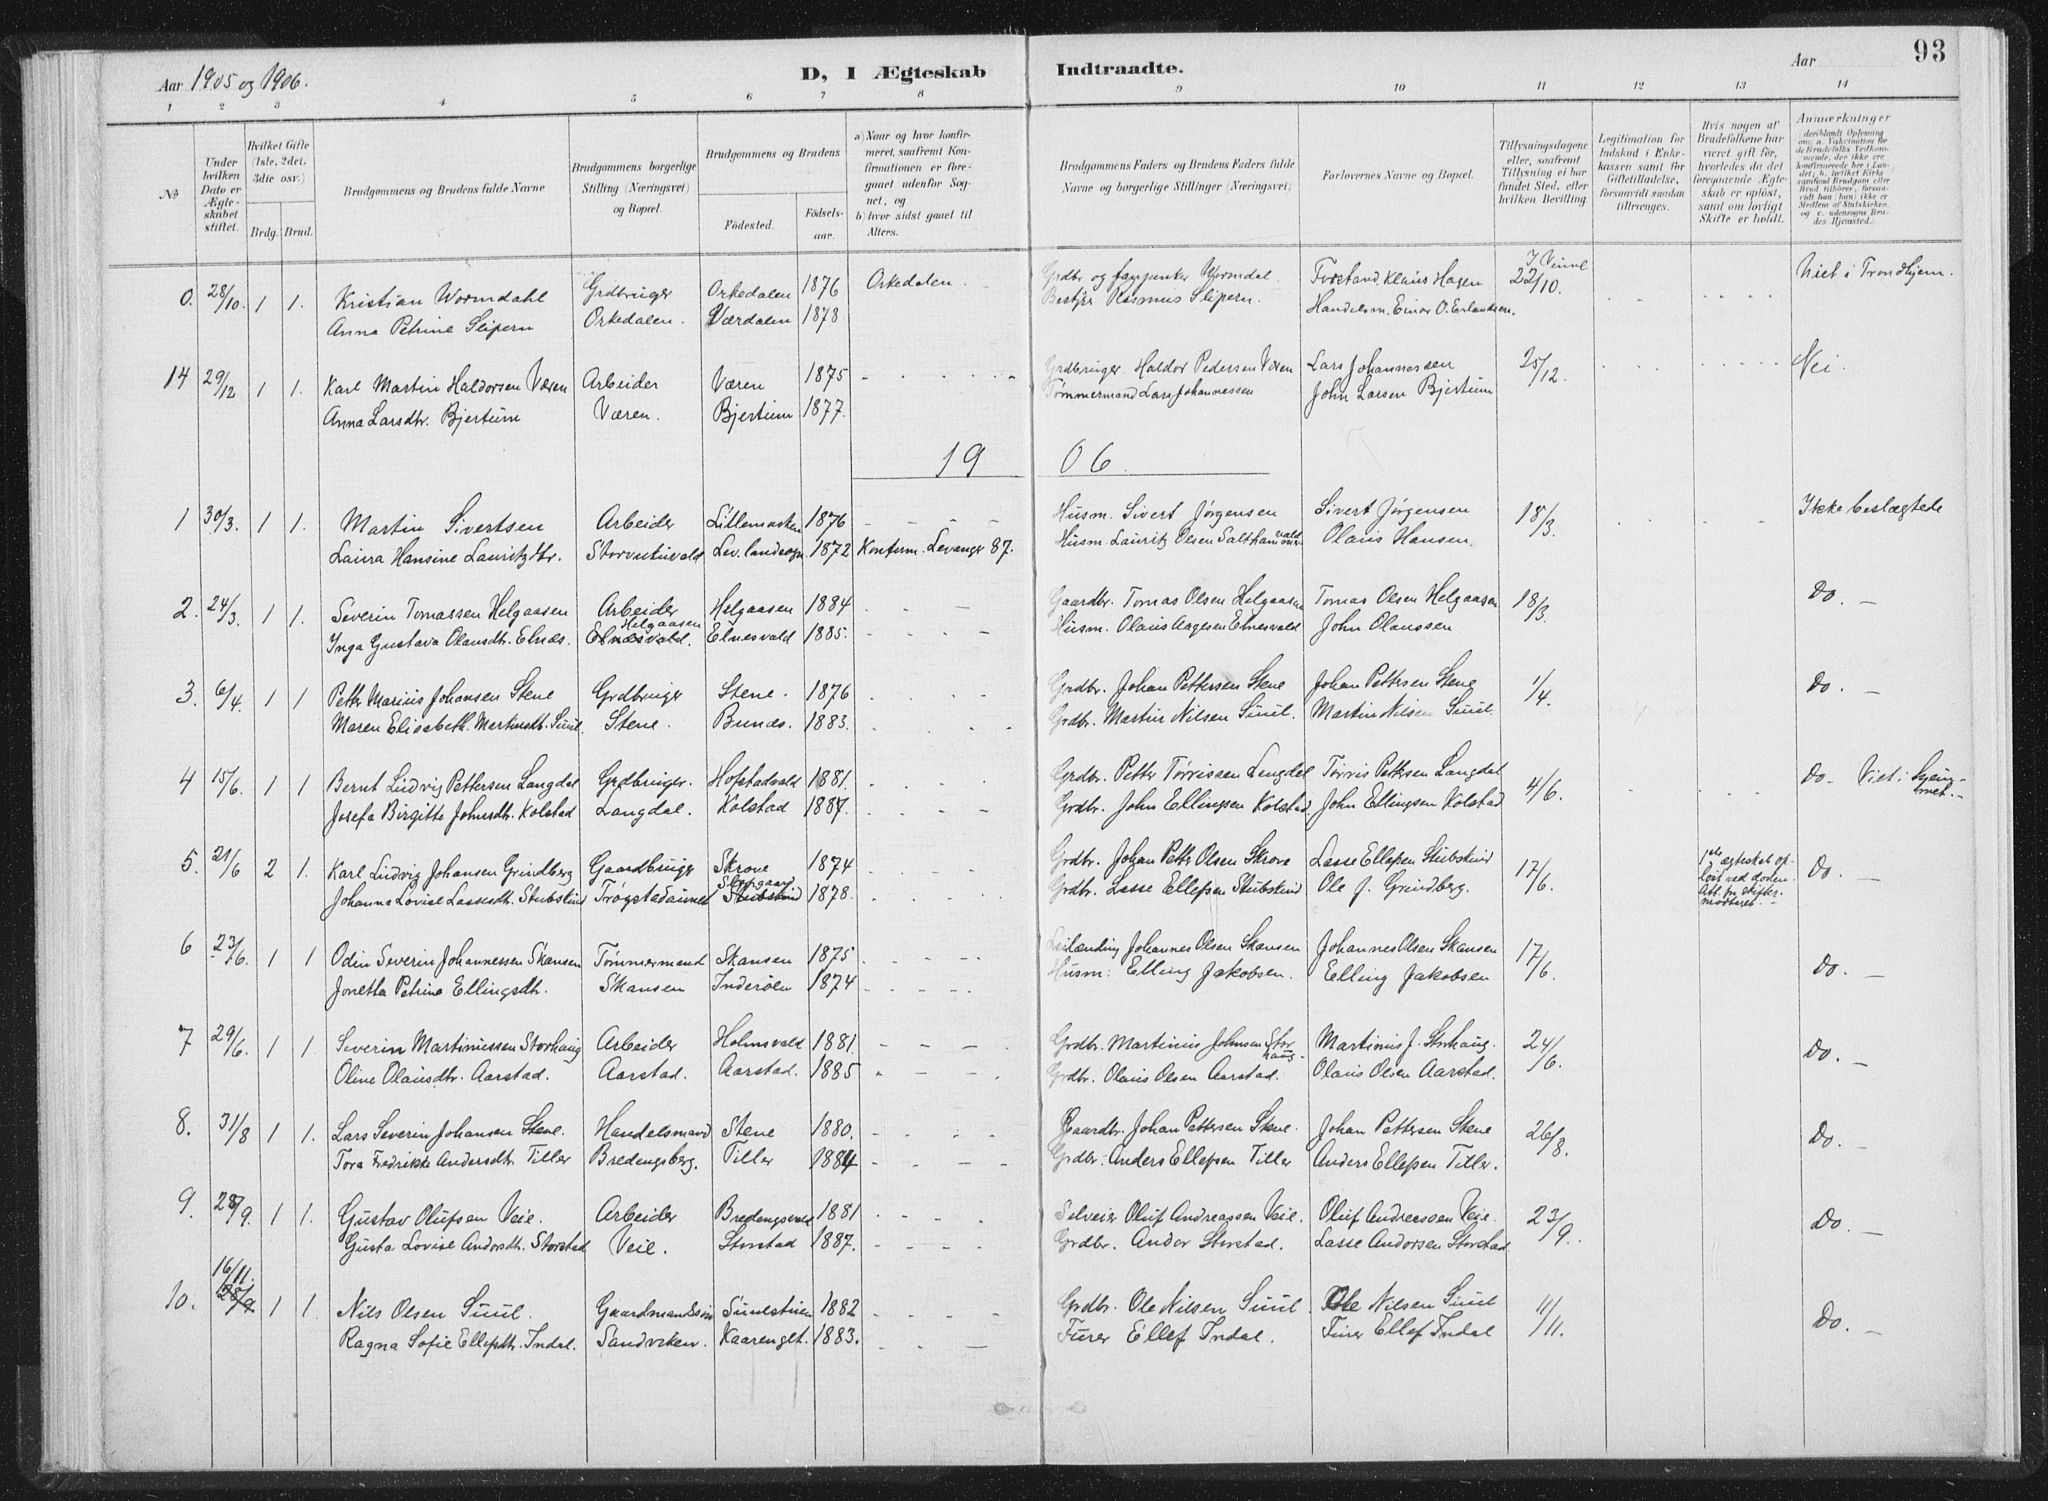 Aar 1905 og 1906.
D, I Ægteskab Indtraadte.
Aar
93
1 2 3 4 5 6 7 8 9 10 11 12 13 14
No
Under hvilken Dato er Ægteskabet stiftet.
Hvilket Gifte (1ste, 2det, 3die osv.)
Brdg. Brud.
Brudgommens og Brudens fulde Navne
Brudgommens borgerlige Stilling (Næringsvei) og Bopæl.
Brudgommens og Brudens
Fødested. Fødselsaar.
a) Naar og hvor konfirmeret, saafremt Konfirmationen er foregaaet udenfor Sognet, og
b) hvor sidst gaaet til Alters.
Brudgommens Faders og Brudens Faders fulde Navne og borgerlige Stillinger (Næringsvei)
Forlovernes Navne og Bopæl.
Tillysningsdagene eller, saafremt Tillysning ei har fundet Sted, efter hvilken Bevilling
Legitimation for Indskud i Enkekassen samt for Giftetilladelse, forsaavidt saadan tiltrænges.
Hvis nogen af Brudefolkene har været gift før, hvorledes da det foregaaende Ægteskab er opløst, samt om lovligt Skifte er holdt.
Anmærkninger
0. 28/10. 1 1. Kristian Wormdahl Grdbruger Orkedalen 1876 Orkedalen. Forstand. Klaus Hagen 22/10. Viet i Trondhjem.
Anna Petrine Slipern Orkedalen. Værdalen 1878 Bestyr. Rasmus Slipern. Handelsm. Einar O. Erlandsen.
14 29/12 1 1. Karl Martin Haldorsen Væren Arbeider Væren 1875 Grdbruger Haldor Pedersen Væren Lars Johannessen 25/12. Nei.
Anna Larsdtr. Bjertum Væren. Bjertum 1877. Tømmermand Lars Johannessen John Larsen Bjertum
19 06
1 30/3. 1 1. Martin Sivertsen Arbeider 1876 Husm. Sivert Jørgensen Sivert Jørgensen 18/3 Ikke beslægtede
Laura Hansine Lauritzdtr. Lev. landsogn 1872 Konferm. Levanger 87. Husm. Lauritz Olsen Olaus Hansen.
2. 24/3. 1 1. Severin Tomassen Helgaasen Arbeider Helgaasen 1884 Gaardbr. Tomas Olsen Helgaasen Tomas Olsen Helgaasen 18/3. Do. —
Inga Gustava Olausdtr. Elnæs. Helgaasen Elnæsvald. Elnesvald 1885. Husm. Olaus Aagesen Elnesvald John Olaussen
3. 6/4. 1 1 Petter Marius Johansen Stene Grdbruger Stene. 1876 Grdbr. Johan Pettersen Stene Johan Pettersen Stene 1/4. Do. —
Maren Elisabeth Martinsdtr. Suul. Stene. 1883. Grdbr. Martin Nilsen Suul. Martin Nilsen Suul.
4 15/6. 1 1 Bernt Ludvig Pettersen Langdal Grdbruger. Hofstadvald 1881. Grdbr. Petter Tørrissen Langdal Tørris Pettersen Langdal 4/6. Do —
Josefa Birgitte Johnsdtr. Kolstad Langdal. Kolstad 1887. Grdbr. John Ellingsen Kolstad. John Ellingsen Kolstad
5. 21/6 2 1. Karl Ludvig Johansen Grindberg Gaardbruger Skrove 1874 Grdbr. Johan Petter Olsen Skrove Lasse Ellefsen Stubskind 17/6. 1ste ægteskab opløst ved døden. Do. —
Johanna Lovise Lassesdtr. Stubskind Trøgstadaunet Stubskind 1878. Grdbr. Lasse Ellefsen Stubskind Ole J. Grindberg.
6 23/6. 1 1 Odin Severin Johannessen Skansen Tømmermand Skansen 1875 Leilænding Johannes Olsen Skansen Johannes Olsen Skansen 17/6. Do. —
Jonetta Petrine Ellingsdtr. Skansen Inderøen 1874 Husm: Elling Jakobsen. Elling Jakobsen
7 29/6. 1 1. Severin Martinussen Storhaug Arbeider Holmsvald 1881. Grdbr. Martinus Johnsen Storhaug. Martinus J. Storhaug. 24/6. Do. —
Oline Olausdtr. Aarstad. Aarstad. Aarstad. 1885 Grdbr. Olaus Olsen Aarstad. Olaus Olsen Aarstad.
8. 31/8 1 1. Lars Severin Johansen Stene. Handelsmand Stene 1880. Gaardbr. Johan Pettersen Stene. Johan Pettersen Stene 26/8. Do. —
Tora Fredrikke Andersdtr. Tiller Bredengsberg. Tiller 1884 Grdbr. Anders Ellefsen Tiller Anders Ellefsen Tiller.
9. 28/9. 1 1. Gustav Olufsen Veie. Arbeider Bredengsvald 1881 Selveier Oluf Andreassen Veie. Oluf Andreassen Veie. 23/9. Do. —
Gusta Lovise Andorsdtr. Storstad Veie. Storstad 1887. Grdbr. Andor Storstad. Lasse Andorsen Storstad
10. 16/11. 28/9 1 1. Nils Olsen Suul. Gaardmandssøn Sulstuen 1882 Grdbr. Ole Nilsen Suul Ole Nilsen Suul 11/11. Do. —
Ragna Sofie Ellefsdtr. Indal. Sandviken. 1883. Furer Ellef Indal. Furer Ellef Indal